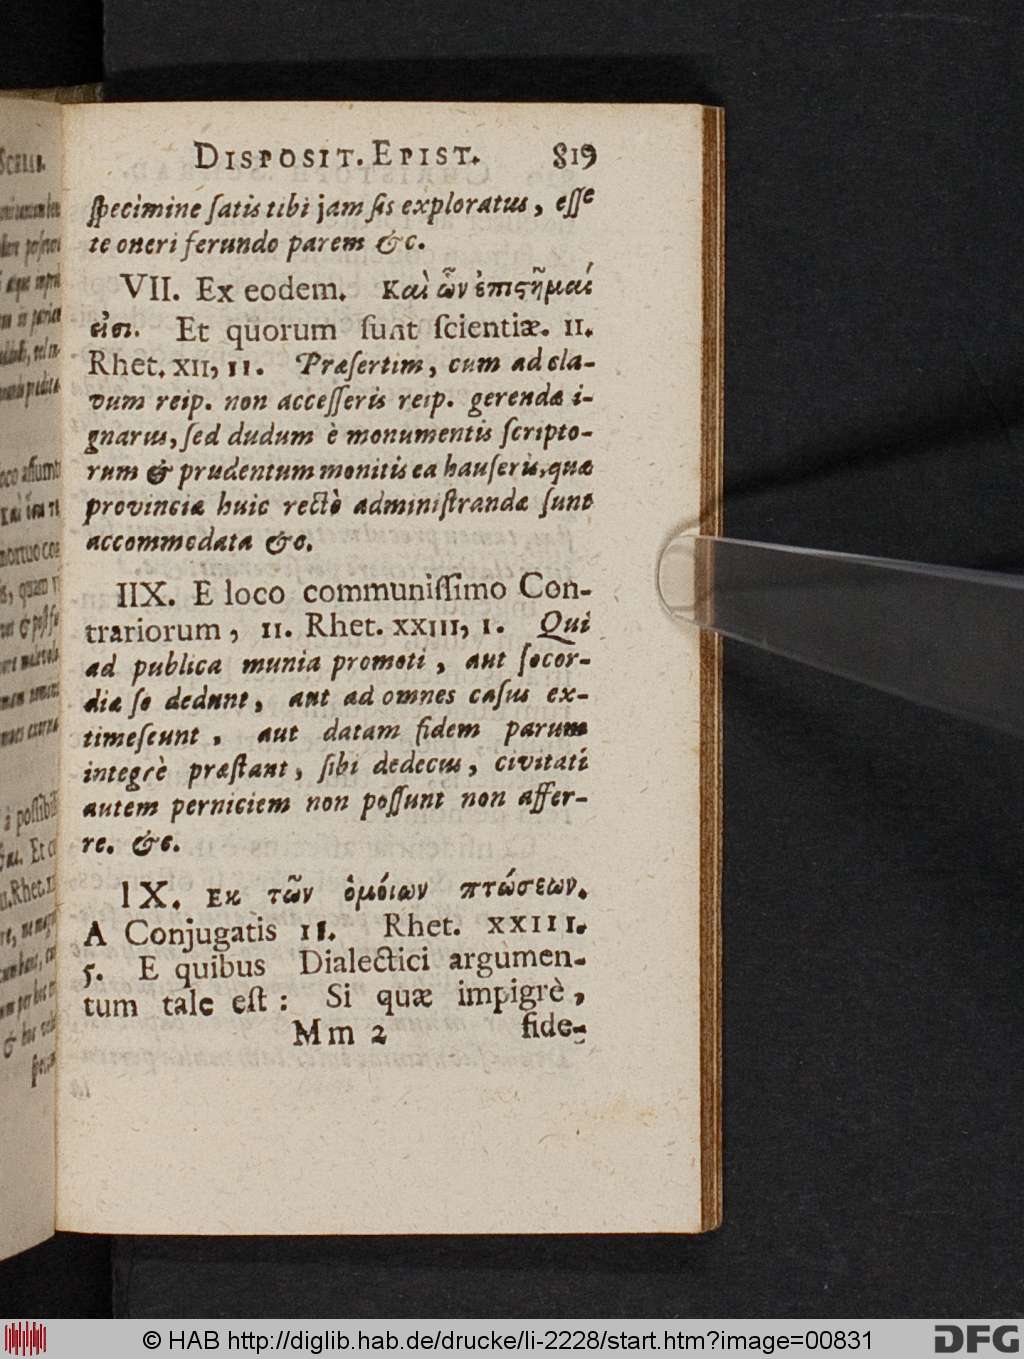 DISPOSIT. EPIST. 819
ſpecimine ſatis tibi jam ſis exploratus, eſſe
te oneri ferundo parem &c.
VII. Ex eodem. Καὶ ὧν ἐπιϛῆμαί
εἰσι. Et quorum ſunt ſcientiæ. II.
Rhet. XII, 11. Præſertim, cum ad cla-
vum reip. non acceſſeris reip. gerendæ i-
gnarus, ſed dudum è monumentis ſcripto-
rum & prudentum monitis ea hauſeris, quæ
provinciæ huic rectè adminiſtrandæ ſunt
accommodata &c.
IIX. E loco communiſſimo Con-
trariorum, II. Rhet. XXIII, 1. Qui
ad publica munia promoti, aut ſocor-
diæ ſe dedunt, aut ad omnes caſus ex-
timeſcunt, aut datam fidem parum
integrè præſtant, ſibi dedecus, civitati
autem perniciem non poſſunt non affer-
re. &c.
IX. Εκ τῶν ὁμοίων πτώσεων.
A Conjugatis II. Rhet. XXIII.
5. E quibus Dialectici argumen-
tum tale eſt: Si quæ impigrè,
Mm 2 fide-
© HAB http://diglib.hab.de/drucke/li-2228/start.htm?image=00831
DFG